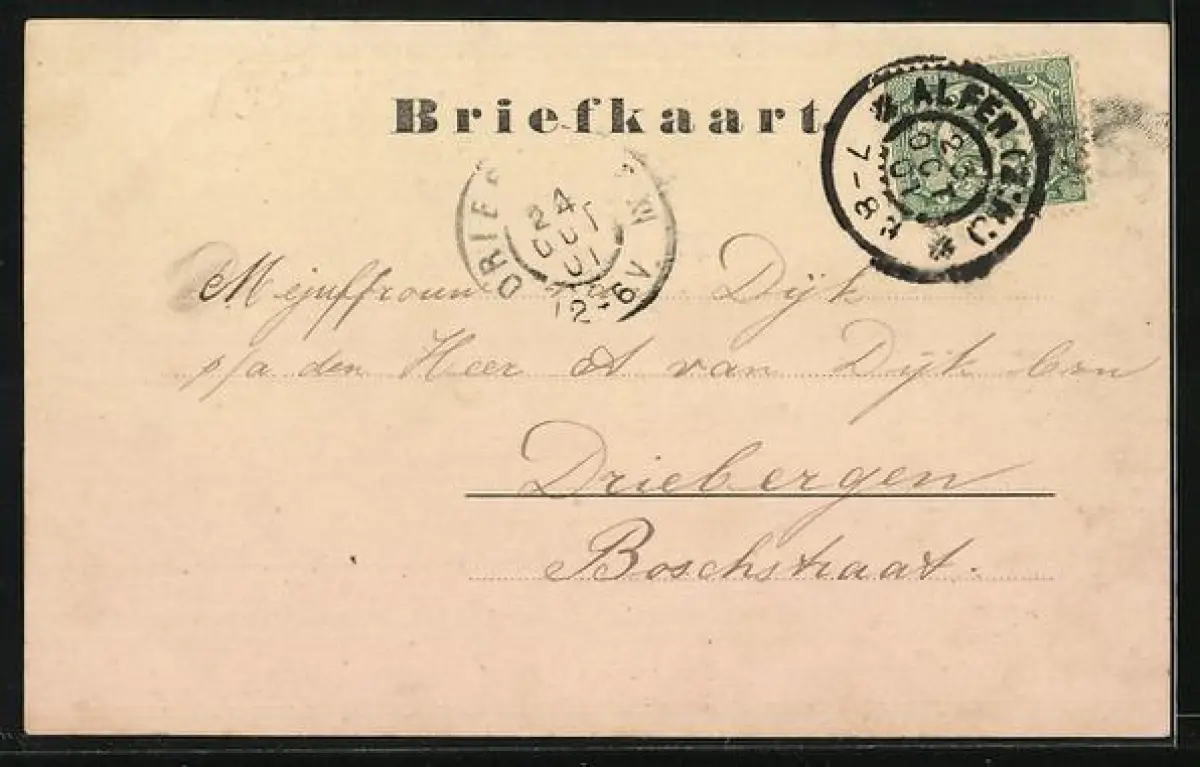 Briefkaart
ALFEN (Z:H:)
23 OCT 01
7-8
DRIE
24 OCT 01
12-6V M
Mejuffrouw Dijk
p/a den Heer A van Dijk
Driebergen
Boschstraat.